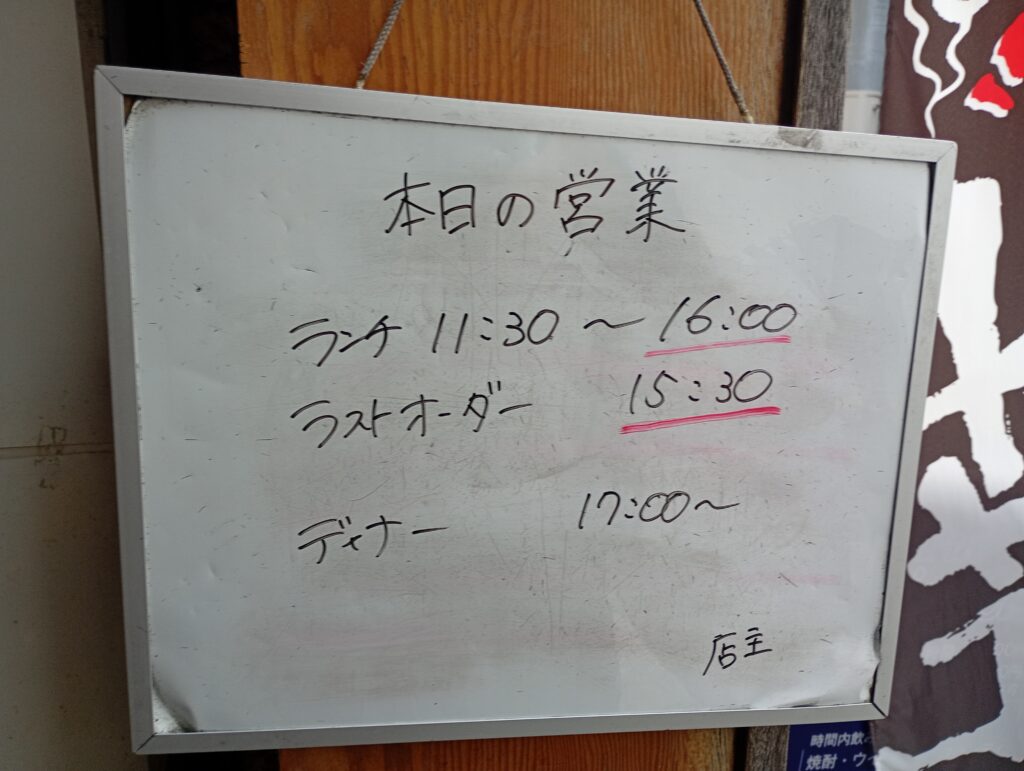 本日の営業
ランチ 11:30 〜 16:00
ラストオーダー 15:30
ディナー 17:00〜
店主
時間内飲
焼酎・ウ